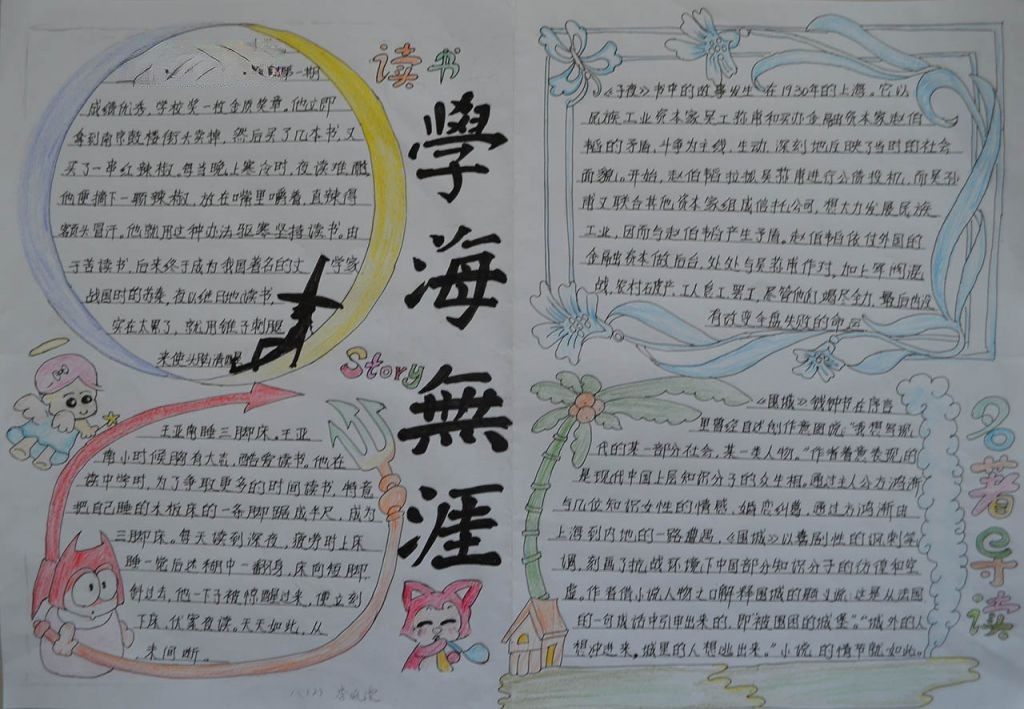 读书
第一期
成绩优秀，学校奖一枚金质奖章。他立即
拿到南京鼓楼街头卖掉，然后买了几本书，又
买了一串红辣椒。每当晚上寒冷时，夜读难耐，
他便摘下一颗辣椒，放在嘴里嚼着，直辣得
额头冒汗。他就用这种办法驱寒坚持读书。由
于苦读书，后来终于成为我国著名的文学家
战国时的苏秦，夜以继日地读书，
实在太累了，就用锥子刺腿
来使头脑清醒
Story
王亚南睡三脚床。王亚
南小时候胸有大志，酷爱读书。他在
读中学时，为了争取更多的时间读书，特意
把自己睡的木板床的一条脚锯成半尺，成为
三脚床。每天读到深夜，疲劳时上床
睡一觉后迷糊中一翻身，床向短脚
斜过去，他一下子被惊醒过来，便立刻
下床，伏案夜读。天天如此，从
未间断。
學海無涯
《子夜》书中的故事发生在1930年的上海。它以
民族工业资本家吴荪甫和买办金融资本家赵伯
韬的矛盾、斗争为主线，生动、深刻地反映了当时的社会
面貌。开始，赵伯韬拉拢吴荪甫进行公债投机，而吴荪
甫又联合其他资本家组成信托公司，想大力发展民族
工业，因而与赵伯韬产生矛盾。赵伯韬依付外国的
金融资本做后台，处处与吴荪甫作对，加上军阀混
战、农村破产、工人怠工、罢工，尽管他们竭尽全力，最后也没
有改变全盘失败的命运
名著导读
《围城》钱钟书在序言
里曾经自述创作意图说："我想写现
代的某一部分社会，某一类人物。"作者着意表现的
是现代中国上层知识分子的众生相。通过主人公方鸿渐
与几位知识女性的情感、婚恋纠葛，通过方鸿渐由
上海到内地的一路遭遇，《围城》以喜剧性的讽刺笔
调，刻画了抗战环境下中国部分知识分子的彷徨和空
虚。作者借小说人物之口解释围城的题义说：这是从法国
的一句成语中引申出来的，即"被围困的城堡"。"城外的人
想冲进来，城里的人想逃出来。"小说的情节就如此。